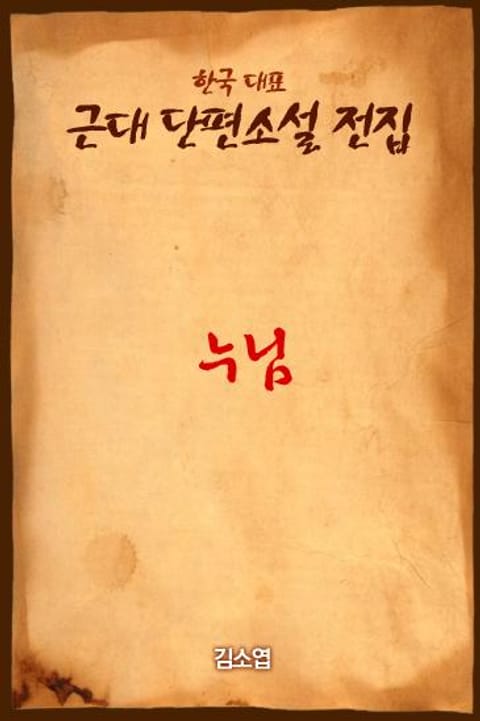 한국 대표
근대 단편소설 전집
누님
김소엽